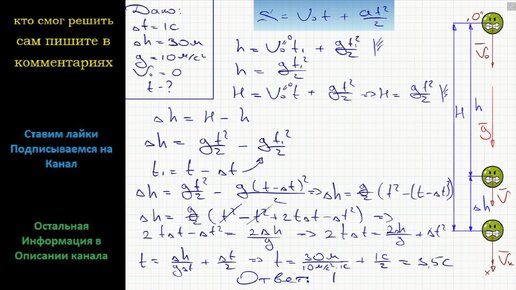 кто смог решить
сам пишите в
комментариях
Ставим лайки
Подписываемся на
Канал
Остальная
Информация в
Описании канала
Дано:
Δt = 1с
Δh = 30м
g = 10м/с²
V₀ = 0
t - ?
S = V₀t + at²/2
h = V₀⁰t₁ + gt₁²/2
h = gt₁²/2
H = V₀⁰t + gt²/2 => H = gt²/2
Δh = H - h
Δh = gt²/2 - gt₁²/2
t₁ = t - Δt
Δh = gt²/2 - g(t-Δt)²/2 => Δh = g/2 (t² - (t-Δt)²)
Δh = g/2 (t² - t² + 2tΔt - Δt²) =>
2tΔt - Δt² = 2Δh/g => 2tΔt = 2Δh/g + Δt²
t = Δh/gΔt + Δt/2 => t = 30м/10м/с²·1с + 1с/2 = 3,5с
Ответ:
0
V₀
H
h
g
V
Δh
Vк
x